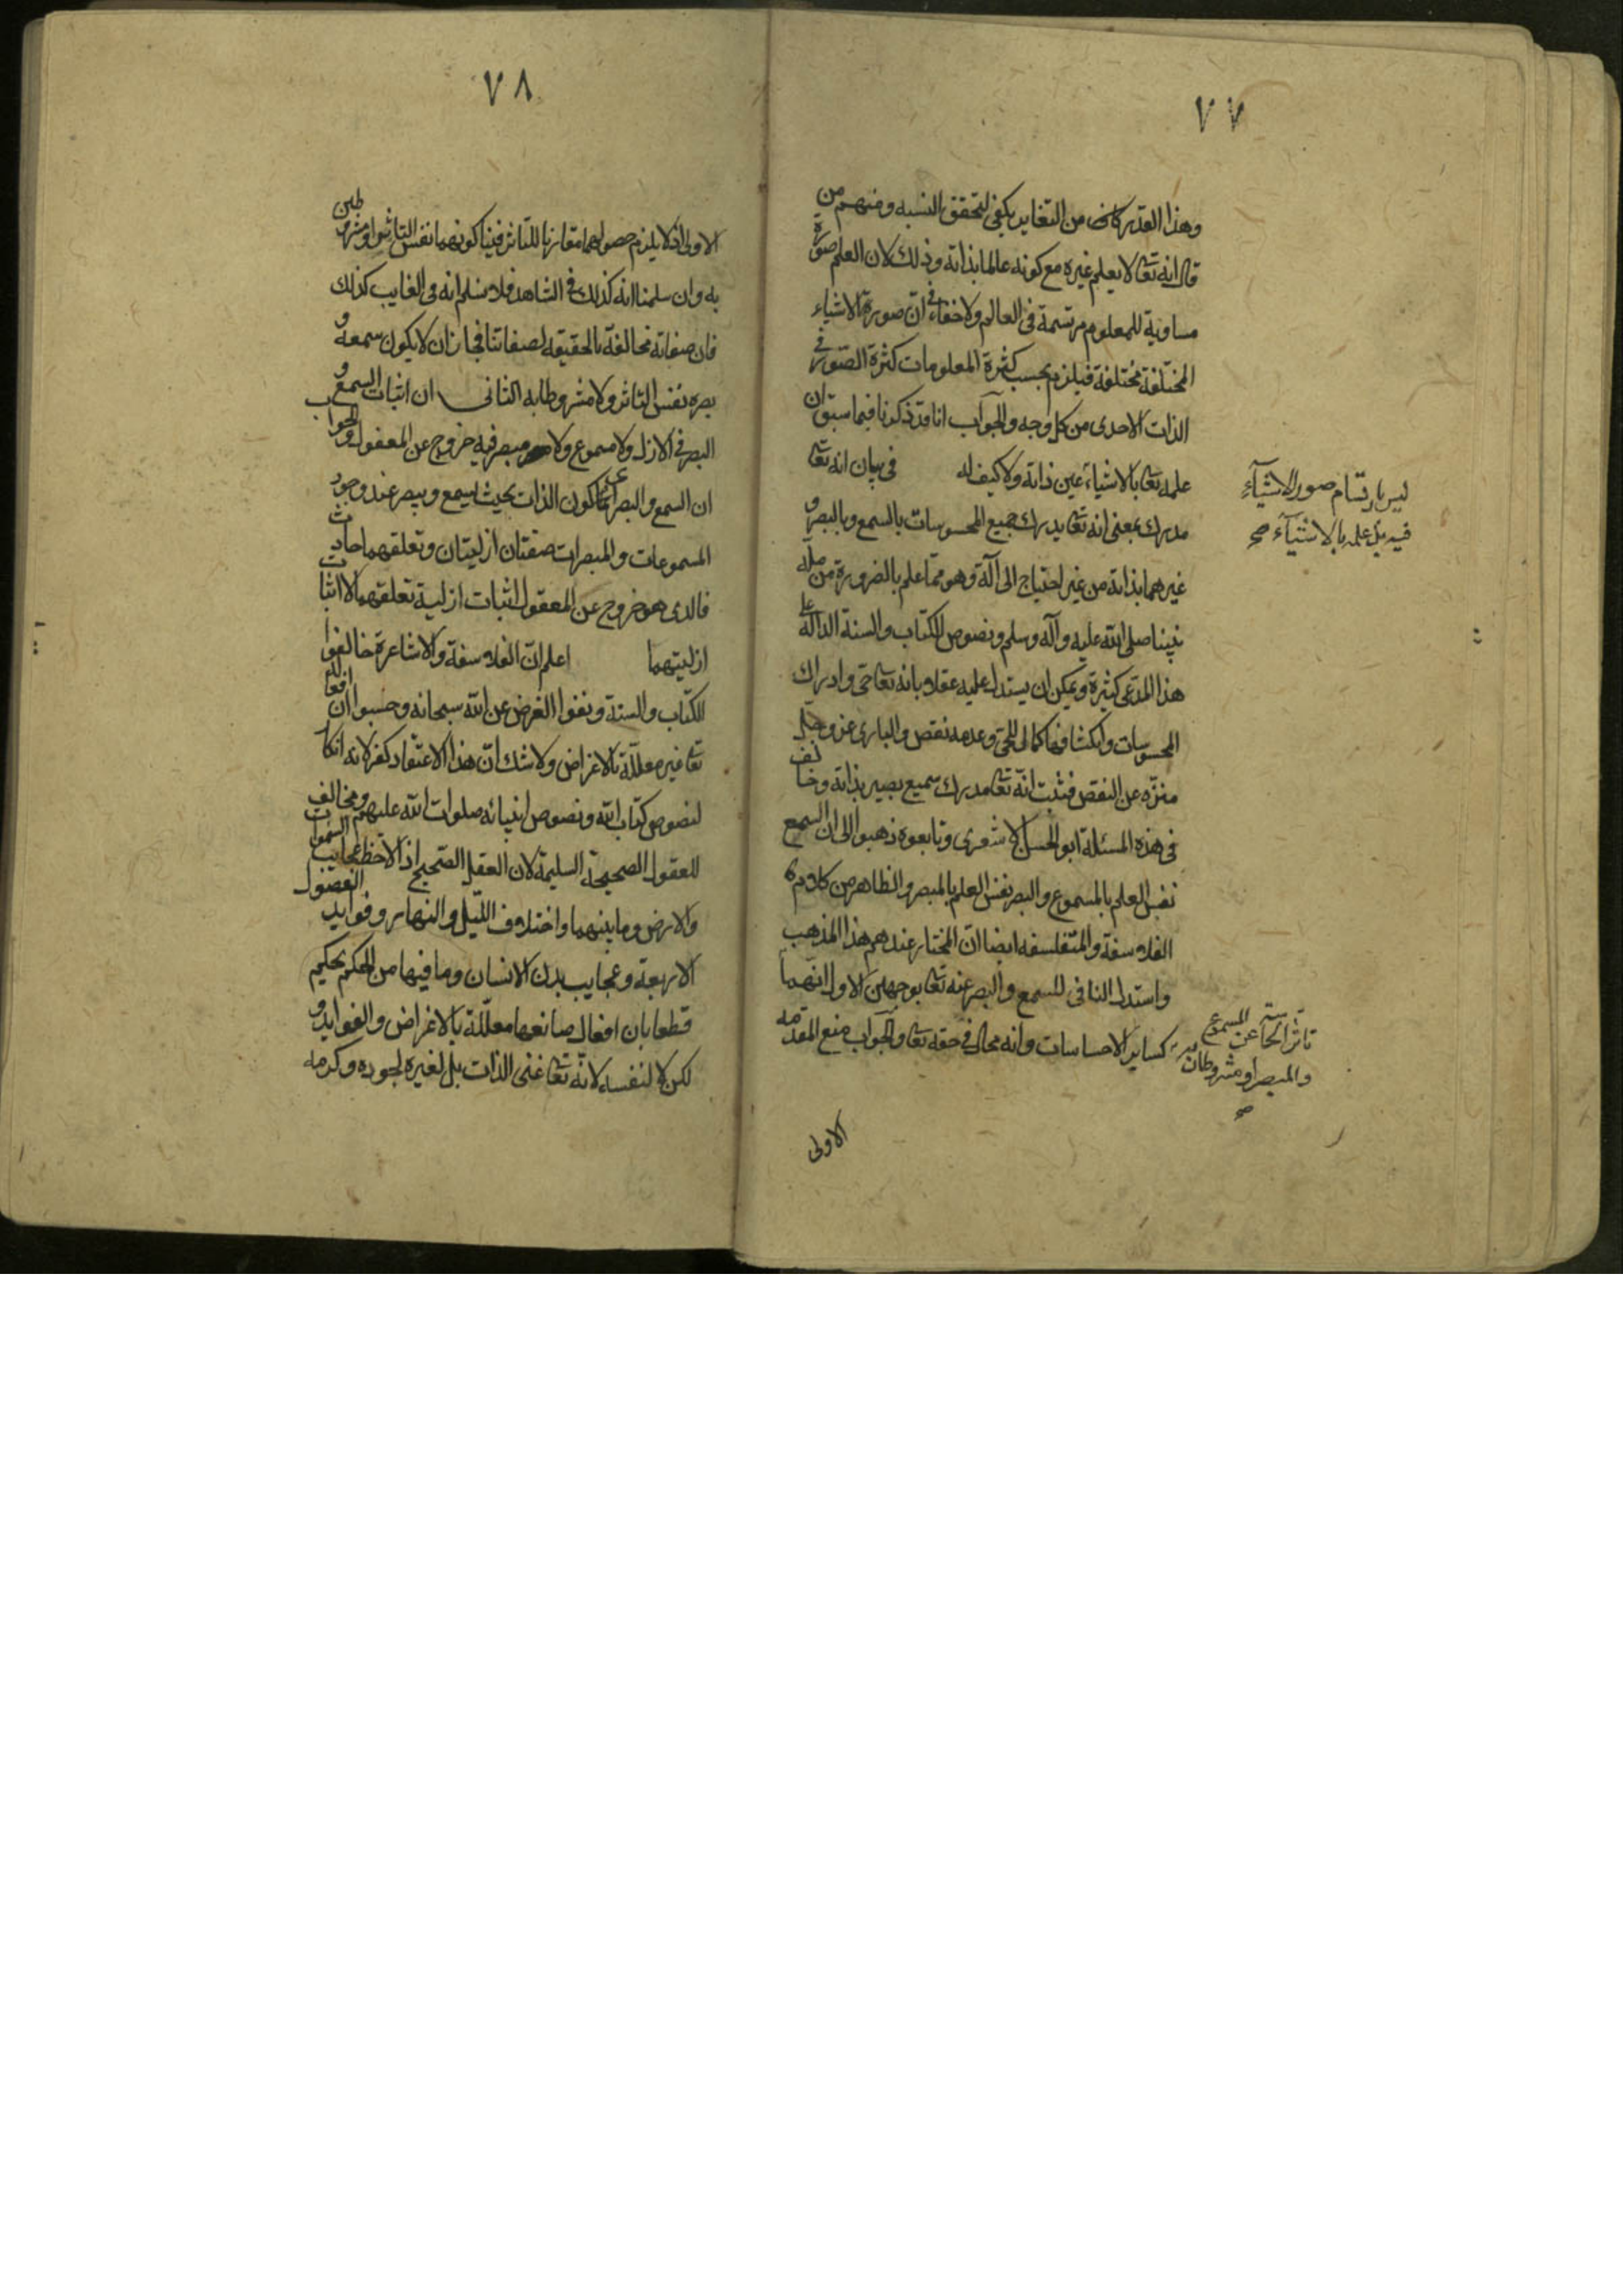 ٧٧
وهذا القدر كاف من التغاير يكفى لتحقق النسبه ومنهم من
قال انه تعا لا يعلم غيره مع كونه عالما بذاته وذلك لان العلم صورة
مساوية للمعلوم مرتسمة فى العالم ولا خفاء فى ان صورة الاشياء
المختلفة مختلفة فيلزم بحسب كثرة المعلومات كثرة الصور فى
الذات الاحدى من كل وجه والجواب انا قد ذكرنا فيما سبق ان
علمه تعا بالاشياء عين ذاته ولا كيف له فى بيان انه تعا
ليس بارتسام صور الاشيآء
فيه بل علمه بالاشيآء صح
مدرك بمعنى انه تعا يدرك جميع المحسوسات بالسمع وبالبصر و
غيرهما بذاته من غير احتياج الى آلة وهو مما علم بالضرورة من ملة
نبينا صلى الله عليه وآله وسلم ونصوص الكتاب والسنة الدالة على
هذا المدعى كثيرة ويمكن ان يستدل عليه عقلا بانه تعا حى وادراك
المحسوسات وانكشافها كمال للحى وعدمه نقص والبارى عز وجل
منزه عن النقص فثبت انه تعا مدرك سميع بصير بذاته وخالف
فى هذه المسئلة ابو الحسن الاشعرى وتابعوه ذهبوا الى ان السمع
نفس العلم بالمسموع والبصر نفس العلم بالمبصر والظاهر من كلام
الفلاسفة والمتفلسفه ايضا ان المختار عندهم هذا المذهب
واستدل النافى للسمع والبصر عنه تعا بوجهين الاول انهما
تاثر الحاسة عن المسموع
والمبصر او مشروطان به
صح
كساير الاحساسات وانه محال فى حقه تعا والجواب منع المقدمه
الاولى
٧٨
الاولى اذ لا يلزم حصولهما مقارنا للتاثر فينا كونهما نفس التاثر او مشروطين
به وان سلمنا انه كذلك فى الشاهد فلا نسلم انه فى الغايب كذلك
فان صفاته مخالفة بالحقيقه لصفاتنا فجاز ان لا يكون سمعه و
بصره نفس التاثر ولا مشروطا به الثانى ان اثبات السمع و
البصر فى الازل ولا مسموع ولا مبصر فيه خروج عن المعقول والجواب
ان السمع والبصر كون الذات بحيث يسمع ويبصر عند وجود
المسموعات والمبصرات صفتان ازليتان وتعلقهما حادث
فالذى هو خروج عن المعقول اثبات ازلية تعلقهما لا اثبات
ازليتهما اعلم ان الفلاسفة والاشاعرة خالفوا
الكتاب والسنة ونفوا الغرض عن الله سبحانه وحسبوا ان افعاله
تعا غير معللة بالاغراض ولا شك ان هذا الاعتقاد كفر لانه انكار
لنصوص كتاب الله ونصوص انبيائه صلوات الله عليهم ومخالف
للعقول الصحيحة السليمة لان العقل الصحيح اذا لاحظ عجايب السموات
والارض وما بينهما واختلاف الليل والنهار وفوايد الفصول
الاربعة وعجايب بدن الانسان وما فيها من الحكم يحكم
قطعا بان افعال صانعها معللة بالاغراض والفوايد و
لكن لا لنفسه لانه تعا غنى الذات بل لغيره لجوده وكرمه